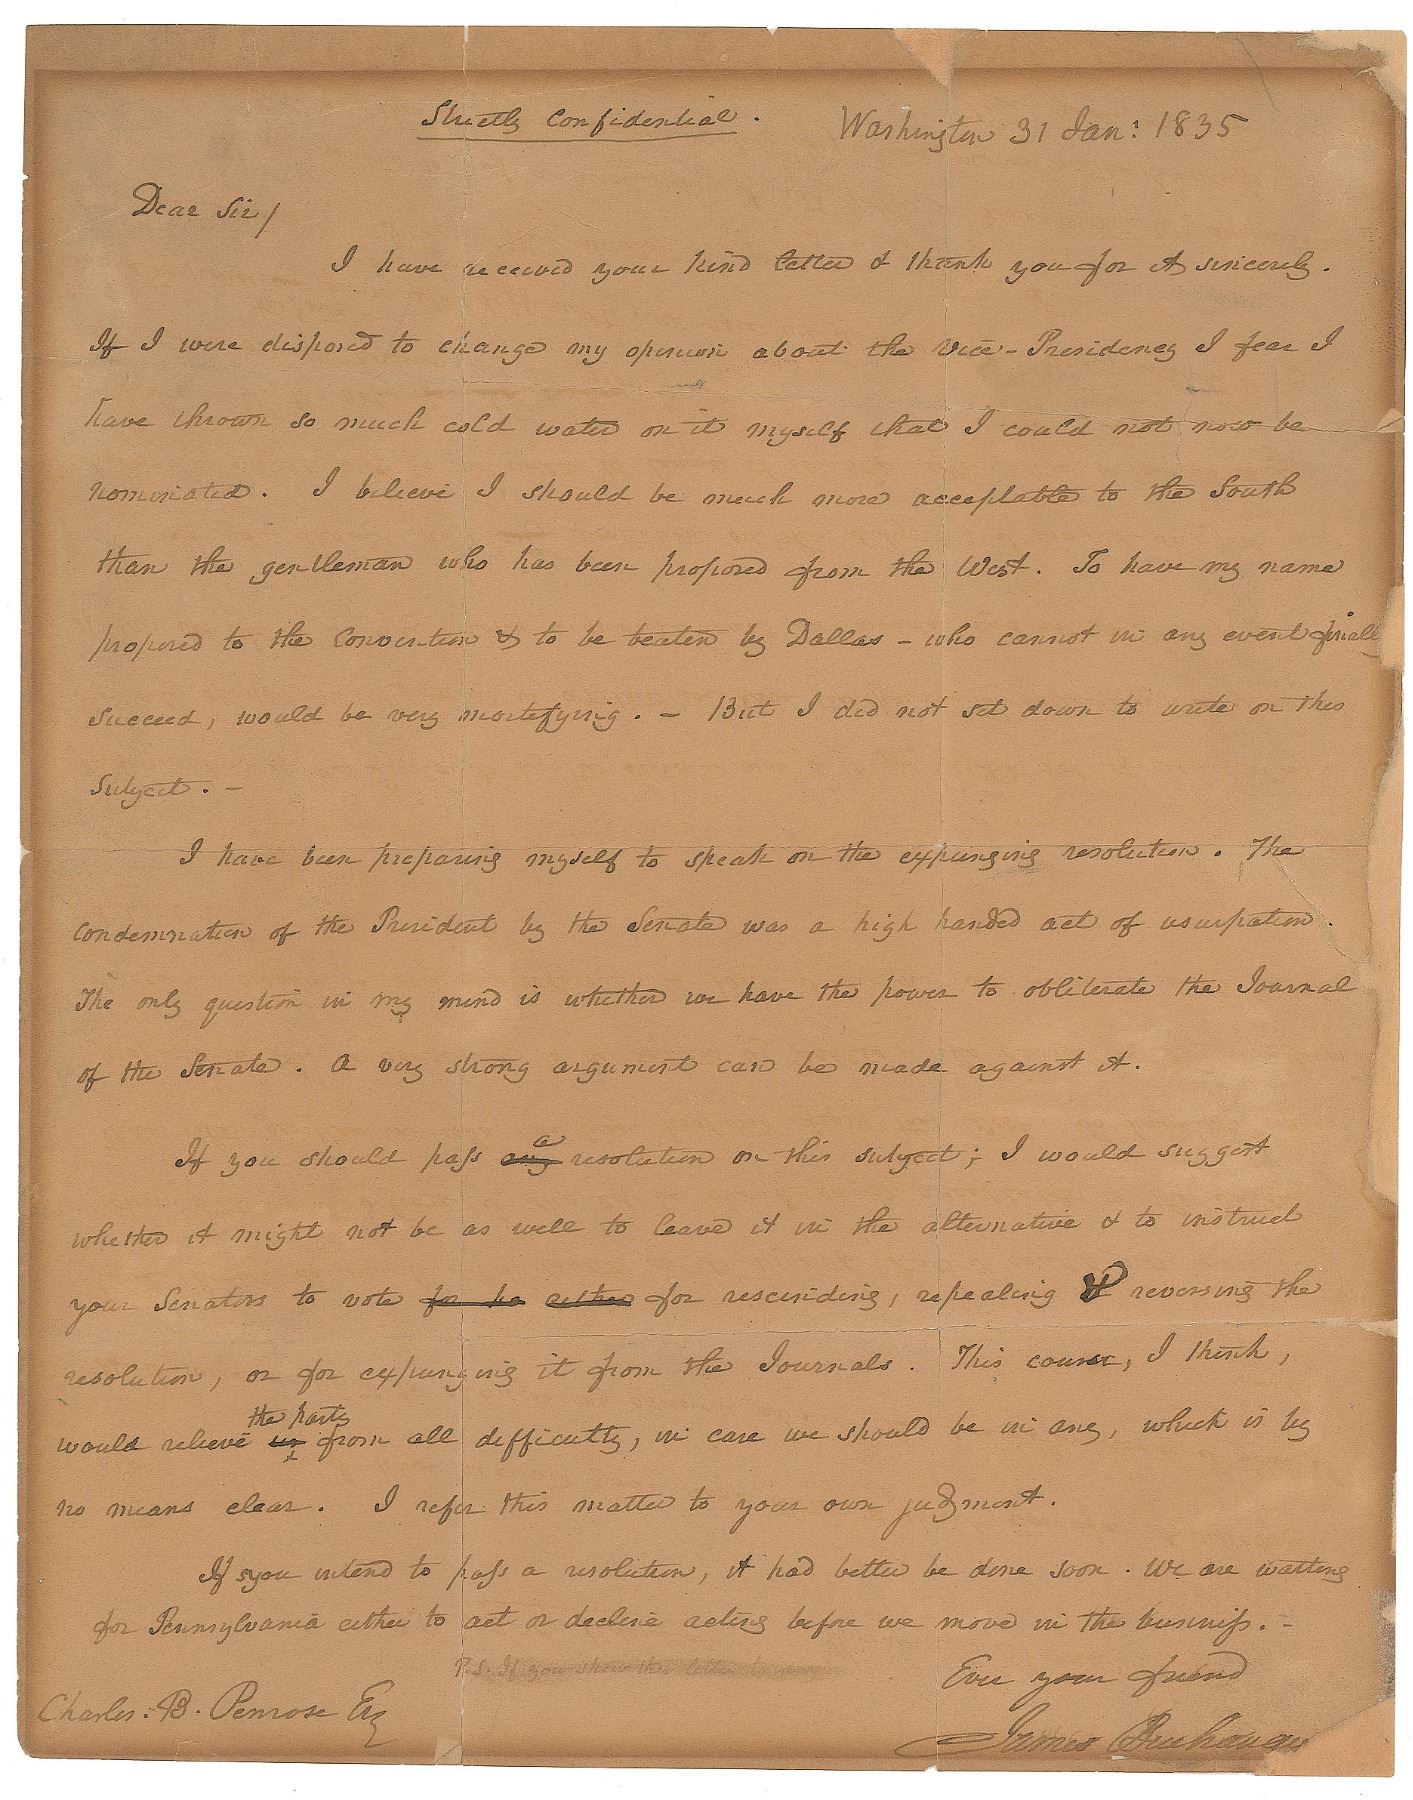 Strictly Confidential.
Washington 31 Jan: 1835
Dear Sir/
I have received your kind letter & thank you for it sincerely.
If I were disposed to change my opinion about the Vice-Presidency I fear I
have thrown so much cold water on it myself that I could not now be
nominated. I believe I should be much more acceptable to the South
than the gentleman who has been proposed from the West. To have my name
proposed to the Convention & to be beaten by Dallas - who cannot in any event finally
succeed, would be very mortifying. - But I did not set down to write on this
subject. -
I have been preparing myself to speak on the expunging resolution. The
condemnation of the President by the Senate was a high handed act of usurpation.
The only question in my mind is whether we have the power to obliterate the Journal
of the Senate. A very strong argument can be made against it.
a
If you should pass any resolution on this subject; I would suggest
whether it might not be as well to leave it in the alternative & to instruct
your Senators to vote for the either for rescinding, repealing & reversing the
resolution, or for expunging it from the Journals. This course, I think,
the party
would relieve us from all difficulty, in case we should be in any, which is by
no means clear. I refer this matter to your own judgment.
If you intend to pass a resolution, it had better be done soon. We are waiting
for Pennsylvania either to act or decline acting before we move in the business. -
P.S. If you show this letter to
Ever your friend
Charles. B. Penrose Esq
James Buchanan